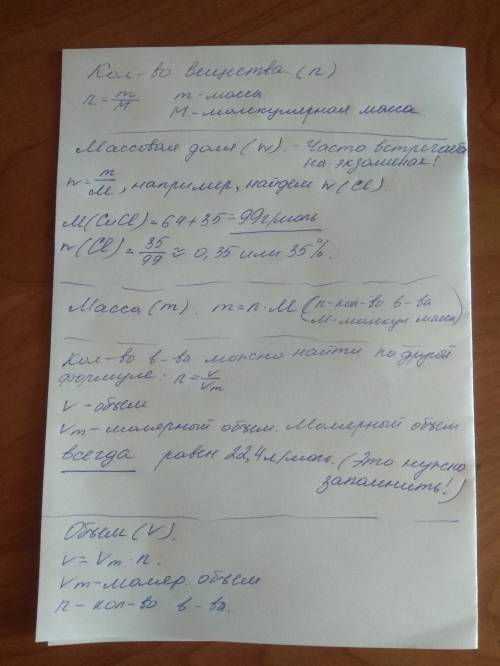 Кол-во вещества (n)
n = m/M m-масса
M-молекулярная масса
Массовая доля (w). - Часто встречается
на экзаменах!
w = m/M, например, найдем w(Cl)
M(CuCl) = 64+35 = 99г/моль
w(Cl) = 35/99 ≈ 0,35 или 35%.
Масса (m). m = n·M (n-кол-во в-ва
M-молекул масса)
Кол-во в-ва можно найти по другой
формуле: n = V/Vm
V-объем
Vm-молярный объем. Молярный объем
всегда равен 22,4л/моль. (Это нужно
запомнить!)
Объем (V).
V = Vm·n.
Vm-моляр. объем
n - кол-во в-ва.